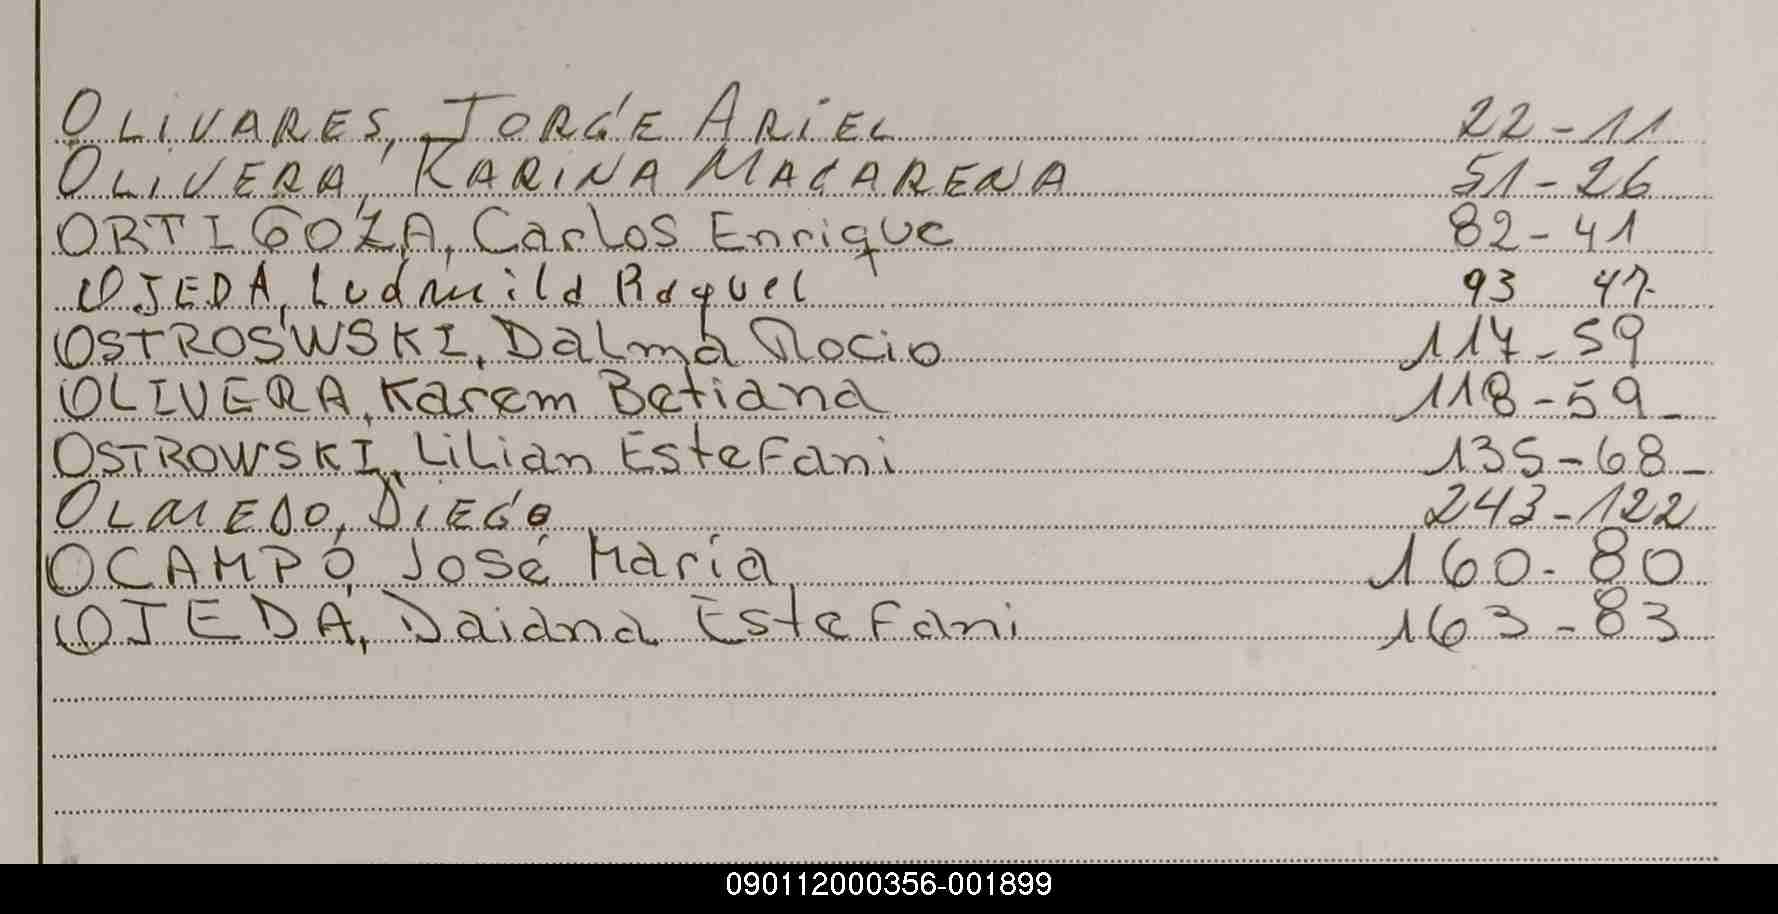 OLIVARES, JORGE ARIEL 22-11
OLIVERA, KARINA MACARENA 51-26
ORTIGOZA, Carlos Enrique 82-41
OJEDA, Ludmila Raquel 93 47-
OSTROSWSKI, Dalma Rocio 117-59
OLIVERA, Karem Betiana 118-59-
OSTROWSKI, Lilian Estefani 135-68-
OLMEDO, DIEGO 243-122
OCAMPO, José María 160-80
OJEDA, Daiana Estefani 163-83
090112000356-001899